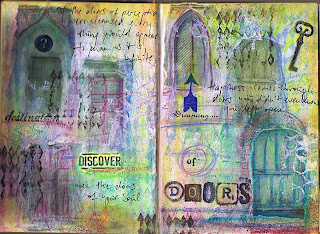 If the doors of perception
were cleansed every
thing would appear
to man as it is
infinite
?
destination
DISCOVER
open the doors
of your soul
Happiness comes through
doors you didn't even know
you left open
Dreaming....
of
DOORS